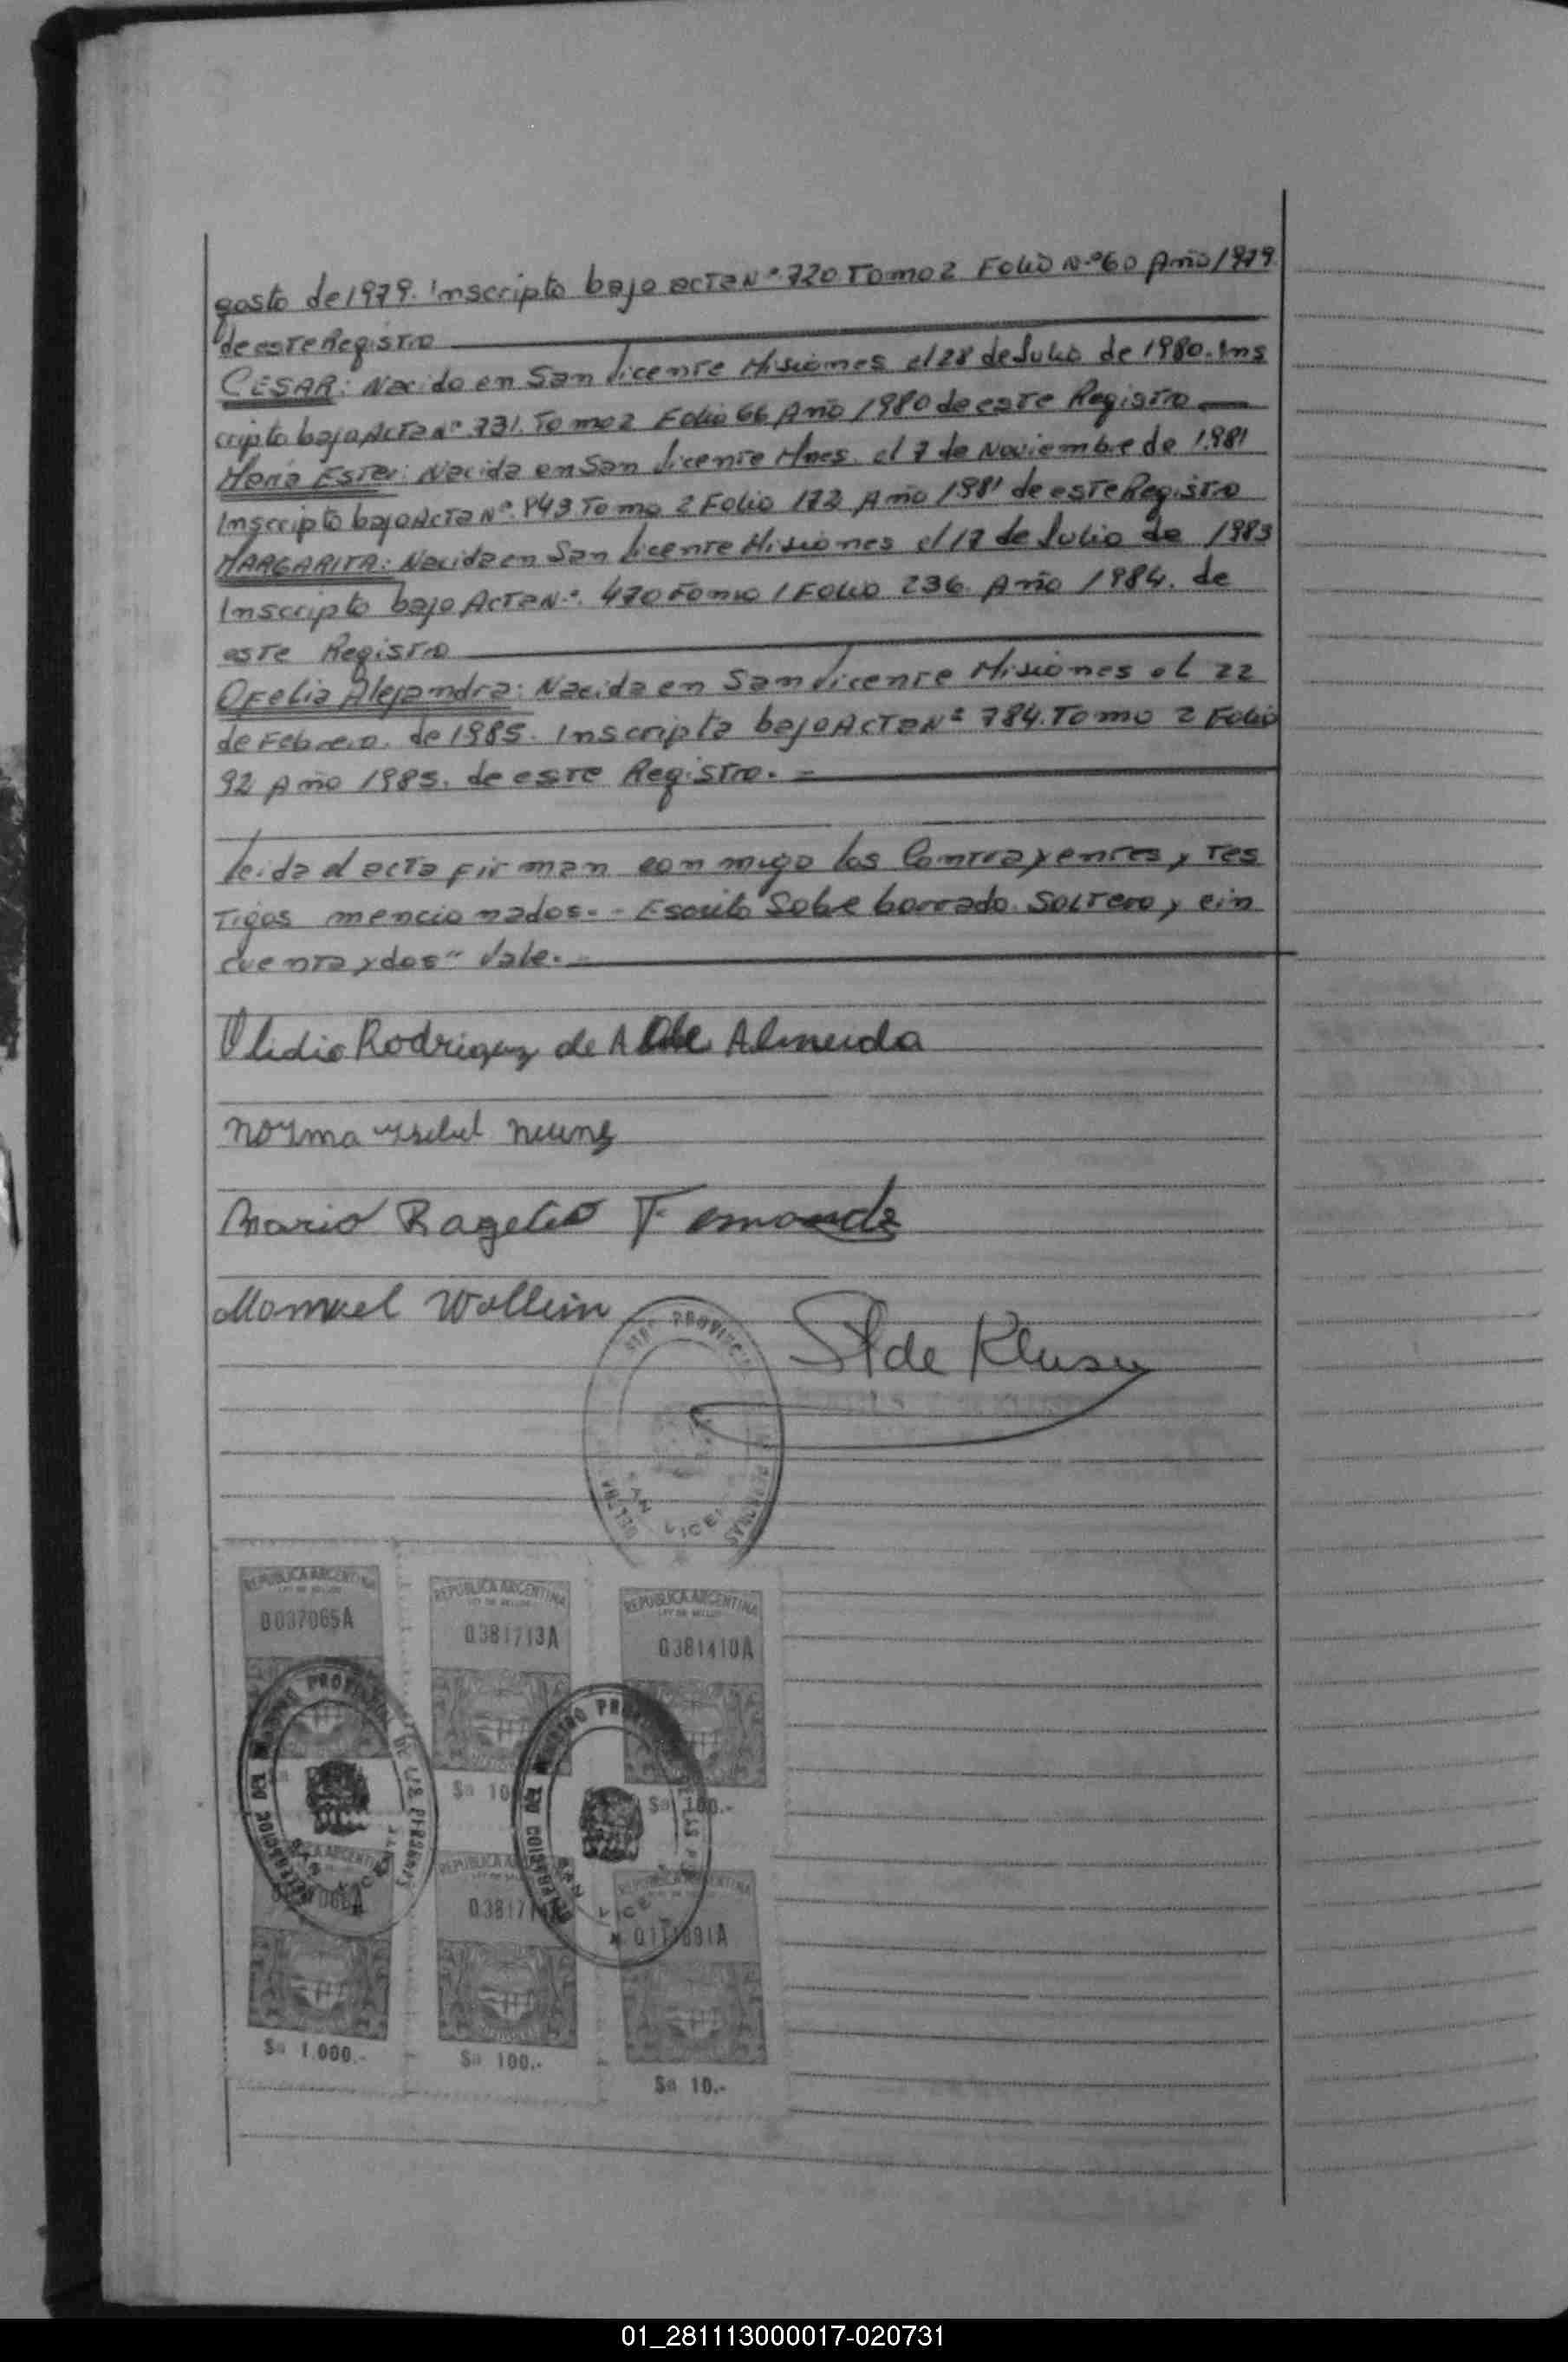 gosto de 1979. Inscripto bajo acta Nº 720 Tomo 2 Folio Nº 60 Año 1979
de este Registro
CESAR: Nacido en San Vicente Misiones el 28 de Julio de 1980. Ins
cripto bajo Acta Nº 731. Tomo 2 Folio 66 Año 1980 de este Registro
María Ester: Nacida en San Vicente Mnes. el 7 de Noviembre de 1981
Inscripto bajo Acta Nº 943 Tomo 2 Folio 172 Año 1981 de este Registro
MARGARITA: Nacida en San Vicente Misiones el 17 de Julio de 1983
Inscripto bajo Acta Nº 470 Tomo 1 Folio 236. Año 1984. de
este Registro
Ofelia Alejandra: Nacida en San Vicente Misiones el 22
de Febrero. de 1985. Inscripta bajo Acta Nº 784. Tomo 2 Folio
92 Año 1985. de este Registro. -
Leida el acta firman conmigo los Contrayentes y Tes
tigos mencionados. - Escrito Sobre borrado Soltero y cin
cuenta y dos" Vale. -
Olidio Rodriguez de Almeida
Norma Ysabel
Mario Rogelio Fernande
Manuel Wollein
de
PROVINCI
PERSONAS
REPUBLICA ARGENTINA
LEY DE SELLOS
0037065A
REPUBLICA ARGENTINA
LEY DE SELLOS
0381713A
REPUBLICA ARGENTINA
LEY DE SELLOS
0381410A
DE LAS PERSONAS
SAN VICENTE
$a 100.-
REPUBLICA
03817
$a 1.000.-
$a 100.-
$a 10.-
01_281113000017-020731